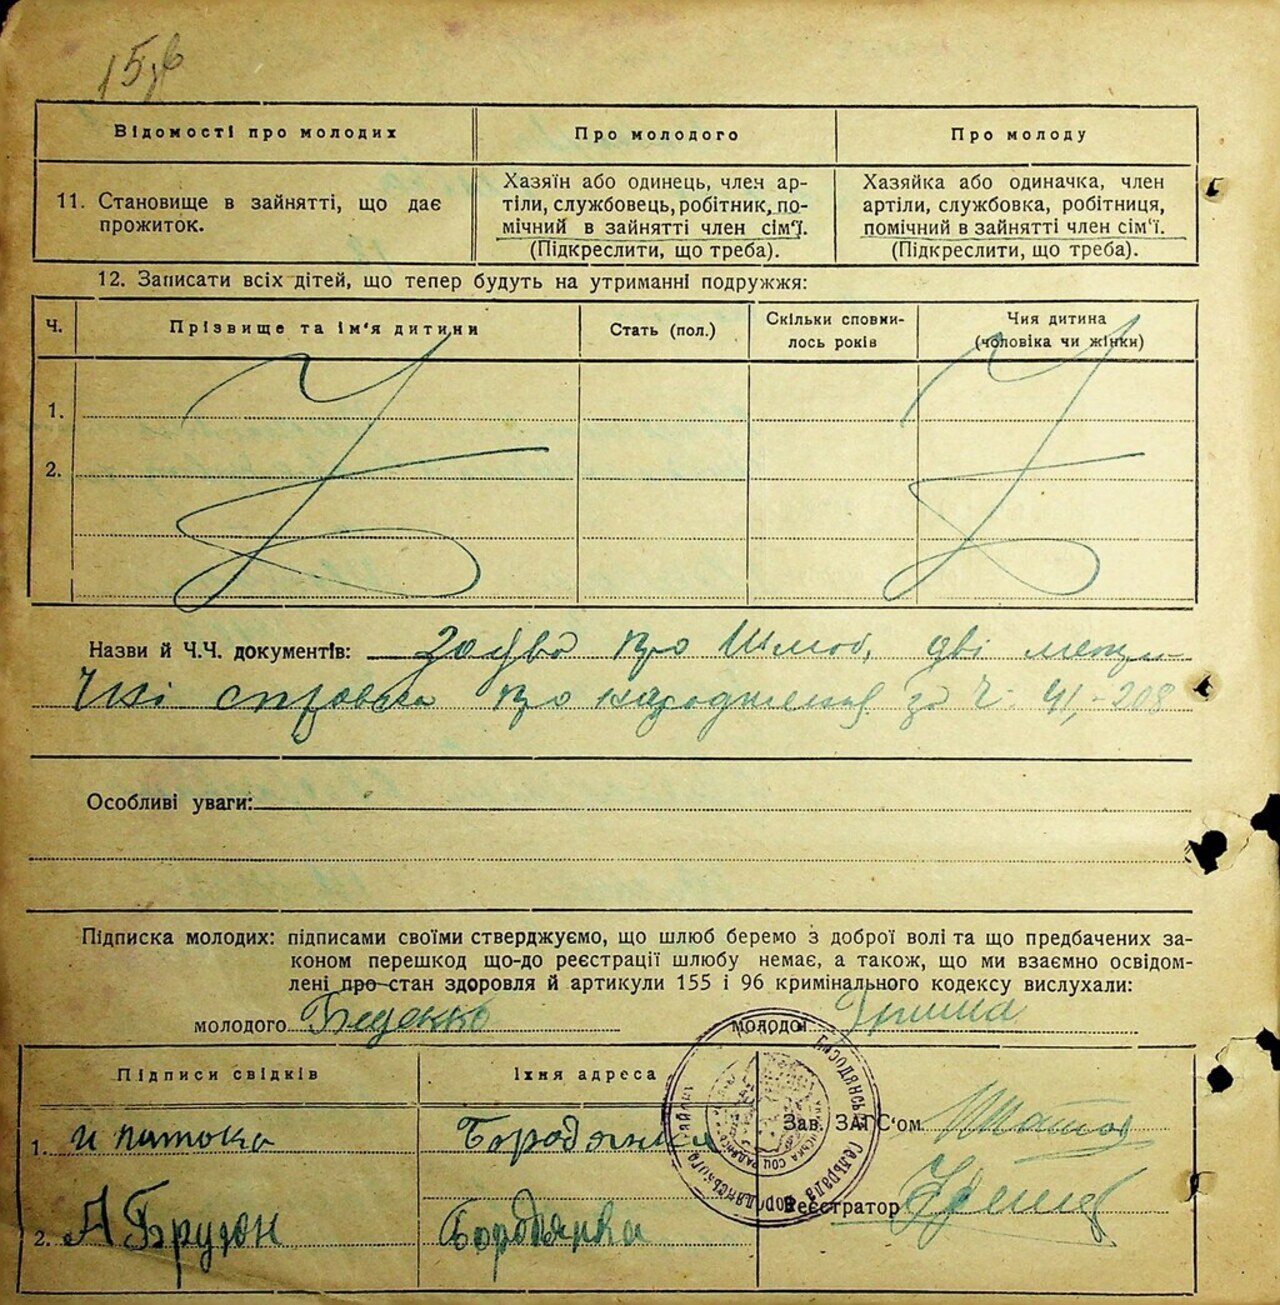 15
Відомості про молодих
Про молодого
Про молоду
11. Становище в зайнятті, що дає прожиток.
Хазяїн або одинець, член ар-
тіли, службовець, робітник, по-
мічний в зайнятті член сім'ї.
(Підкреслити, що треба).
Хазяйка або одиначка, член
артіли, службовка, робітниця,
помічний в зайнятті член сім'ї.
(Підкреслити, що треба).
12. Записати всіх дітей, що тепер будуть на утриманні подружжя:
Ч.
Прізвище та ім'я дитини
Стать (пол.)
Скільки сповни-
лось років
Чия дитина
(чоловіка чи жінки)
1.
2.
Назви й Ч.Ч. документів: Заява про шлюб, дві
справка про народження за ч: 41,-208
Особливі уваги:
Підписка молодих: підписами своїми стверджуємо, що шлюб беремо з доброї волі та що предбачених за-
коном перешкод що-до реєстрації шлюбу немає, а також, що ми взаємно освідом-
лені про стан здоровля й артикули 155 і 96 кримінального кодексу вислухали:
молодого
молодої
Підписи свідків
Їхня адреса
1.
Бородянка
Зав. ЗАГС'ом
Реєстратор
2. А
Бородянка